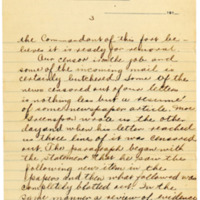 3
the Commandant of this post be-
lieves it is ready for removal.
Our censor is on the job and
some of the incoming mail is
certainly butchered. Some of the
news censored out of our letters
is nothing less but a resumé
of some newspaper article. Moe
wrote us the other
day and when his letter reached
us three lines of it was censored
out. The paragraph began with
the statement that he saw the
following news item in the
papers and then what followed was
completely blotted out. In the
same manner a review of evidence